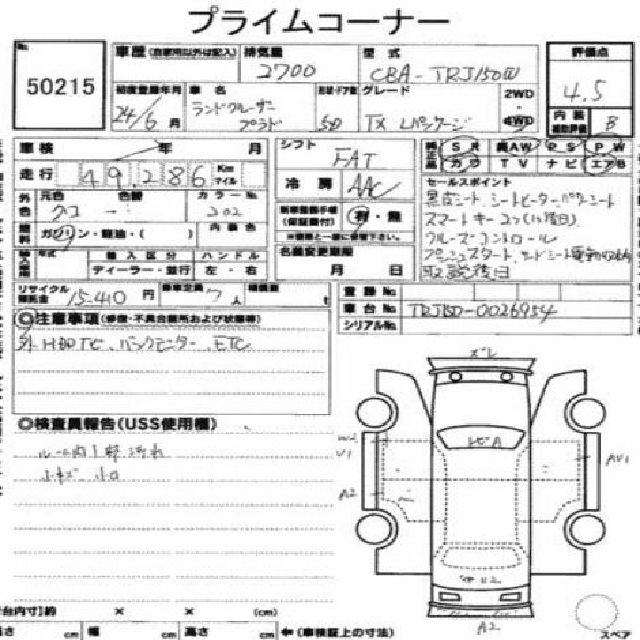 プライムコーナー
No. 50215
車歴 (自家用以外は記入) 排気量 2700 型式 CBA-TRJ150W 評価点 4.5
初度登録年月 24/6月 車名 ランドクルーザー プラド 形状・ドア数 5D グレード TX Lパッケージ 2WD 4WD
内装 補助評価 B
車検 年 月
シフト FAT
SR 革AW PS PW
カワ TV ナビ エアB
走行 49,286 Km マイル
冷房 AAC
セールスポイント
外色 元色 クロ 色替 - カラーNo. 202
黒革シート、シートヒーター、パワーシート
スマートキー
クルーズコントロール
燃料 ガソリン・軽油・( ) 内装色
有・無
年式 輸入区分 ハンドル
ディーラー・並行 左・右
名義変更期限 月 日
リサイクル預託金 15,410円 乗車定員 7人 積載量 t
登録No.
車台No. TRJ150-0026954
シリアルNo.
◎注意事項 (修復・不具合箇所および状態等)
外H部TC、バックモニター、ETC
◎検査員報告(USS使用欄)
ルーム内 汚れ
小キズ 小凹
ズレ
ヒビA
W2
V1
A2
AV1
U2
A2
台内寸】約 × × (cm)
さ cm 幅 cm 高さ cm ←(車検証上の寸法)
スペア